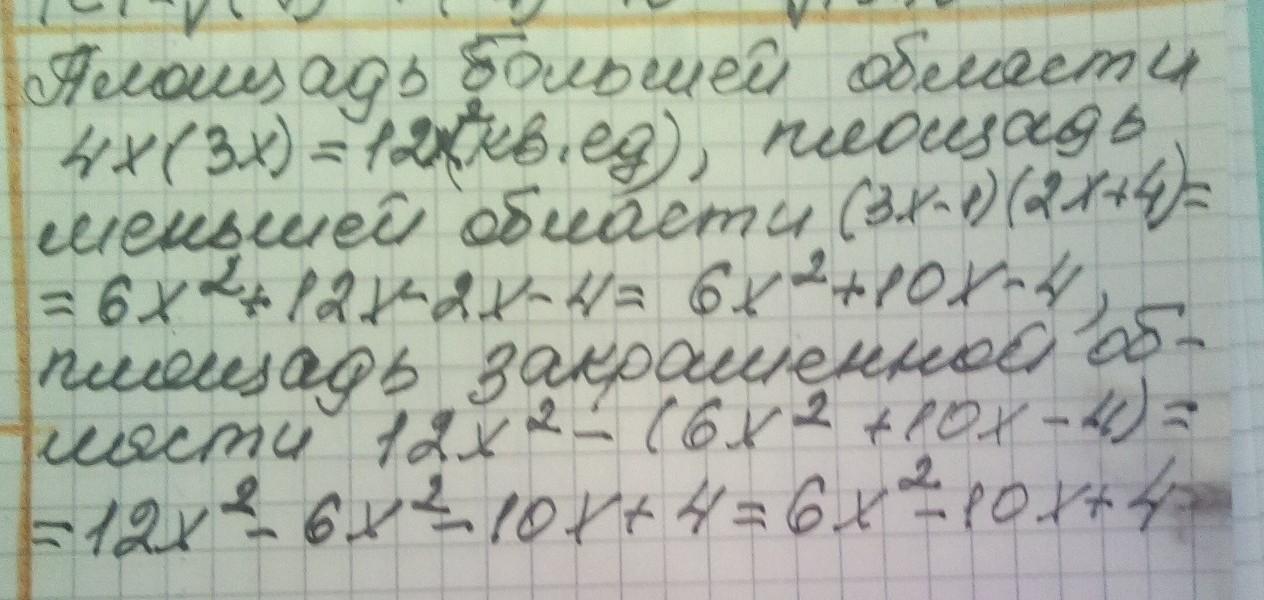 Площадь большей области
4x(3x)=12x²(кв.ед), площадь
меньшей области (3x-1)(2x+4)=
=6x²+12x-2x-4= 6x²+10x-4,
площадь закрашенной об-
ласти 12x²-(6x²+10x-4)=
=12x²-6x²-10x+4=6x²-10x+4